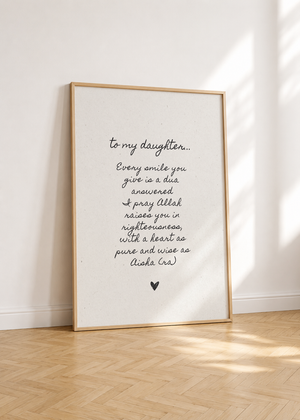 to my daughter...
Every smile you
give is a dua
answered
I pray Allah
raises you in
righteousness,
with a heart as
pure and wise as
Aisha (ra)